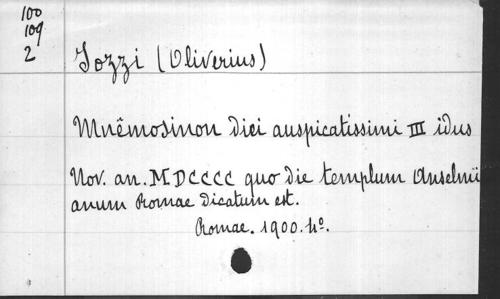 100
109
2
Iozzi (Oliverius)
Mnêmosinon diei auspicatissimi III idus
Nov. an. MDCCCC quo die templum Anselmi
anum Romae dicatum est.
Romae. 1900. 4º.